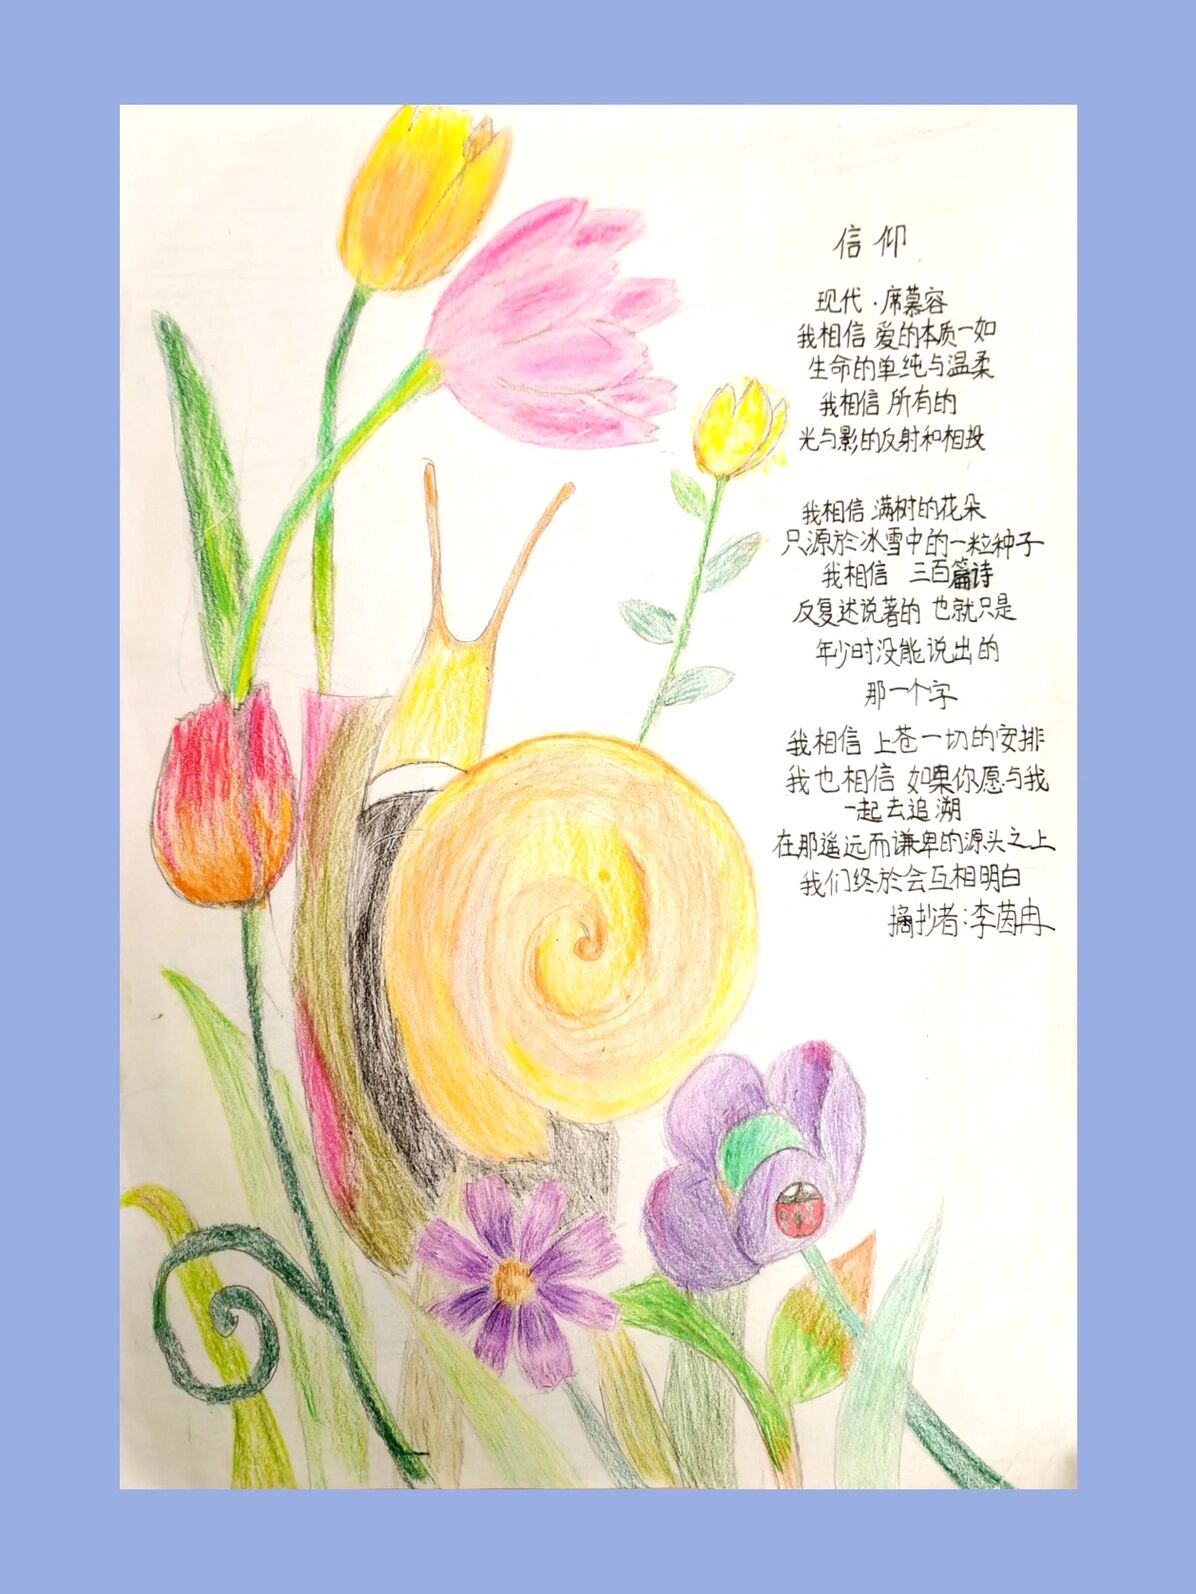 信仰
现代·席慕容
我相信 爱的本质一如
生命的单纯与温柔
我相信 所有的
光与影的反射和相投
我相信 满树的花朵
只源於冰雪中的一粒种子
我相信 三百篇诗
反复述说著的 也就只是
年少时没能说出的
那一个字
我相信 上苍一切的安排
我也相信 如果你愿与我
一起去追溯
在那遥远而谦卑的源头之上
我们终於会互相明白
摘抄者:李茵冉